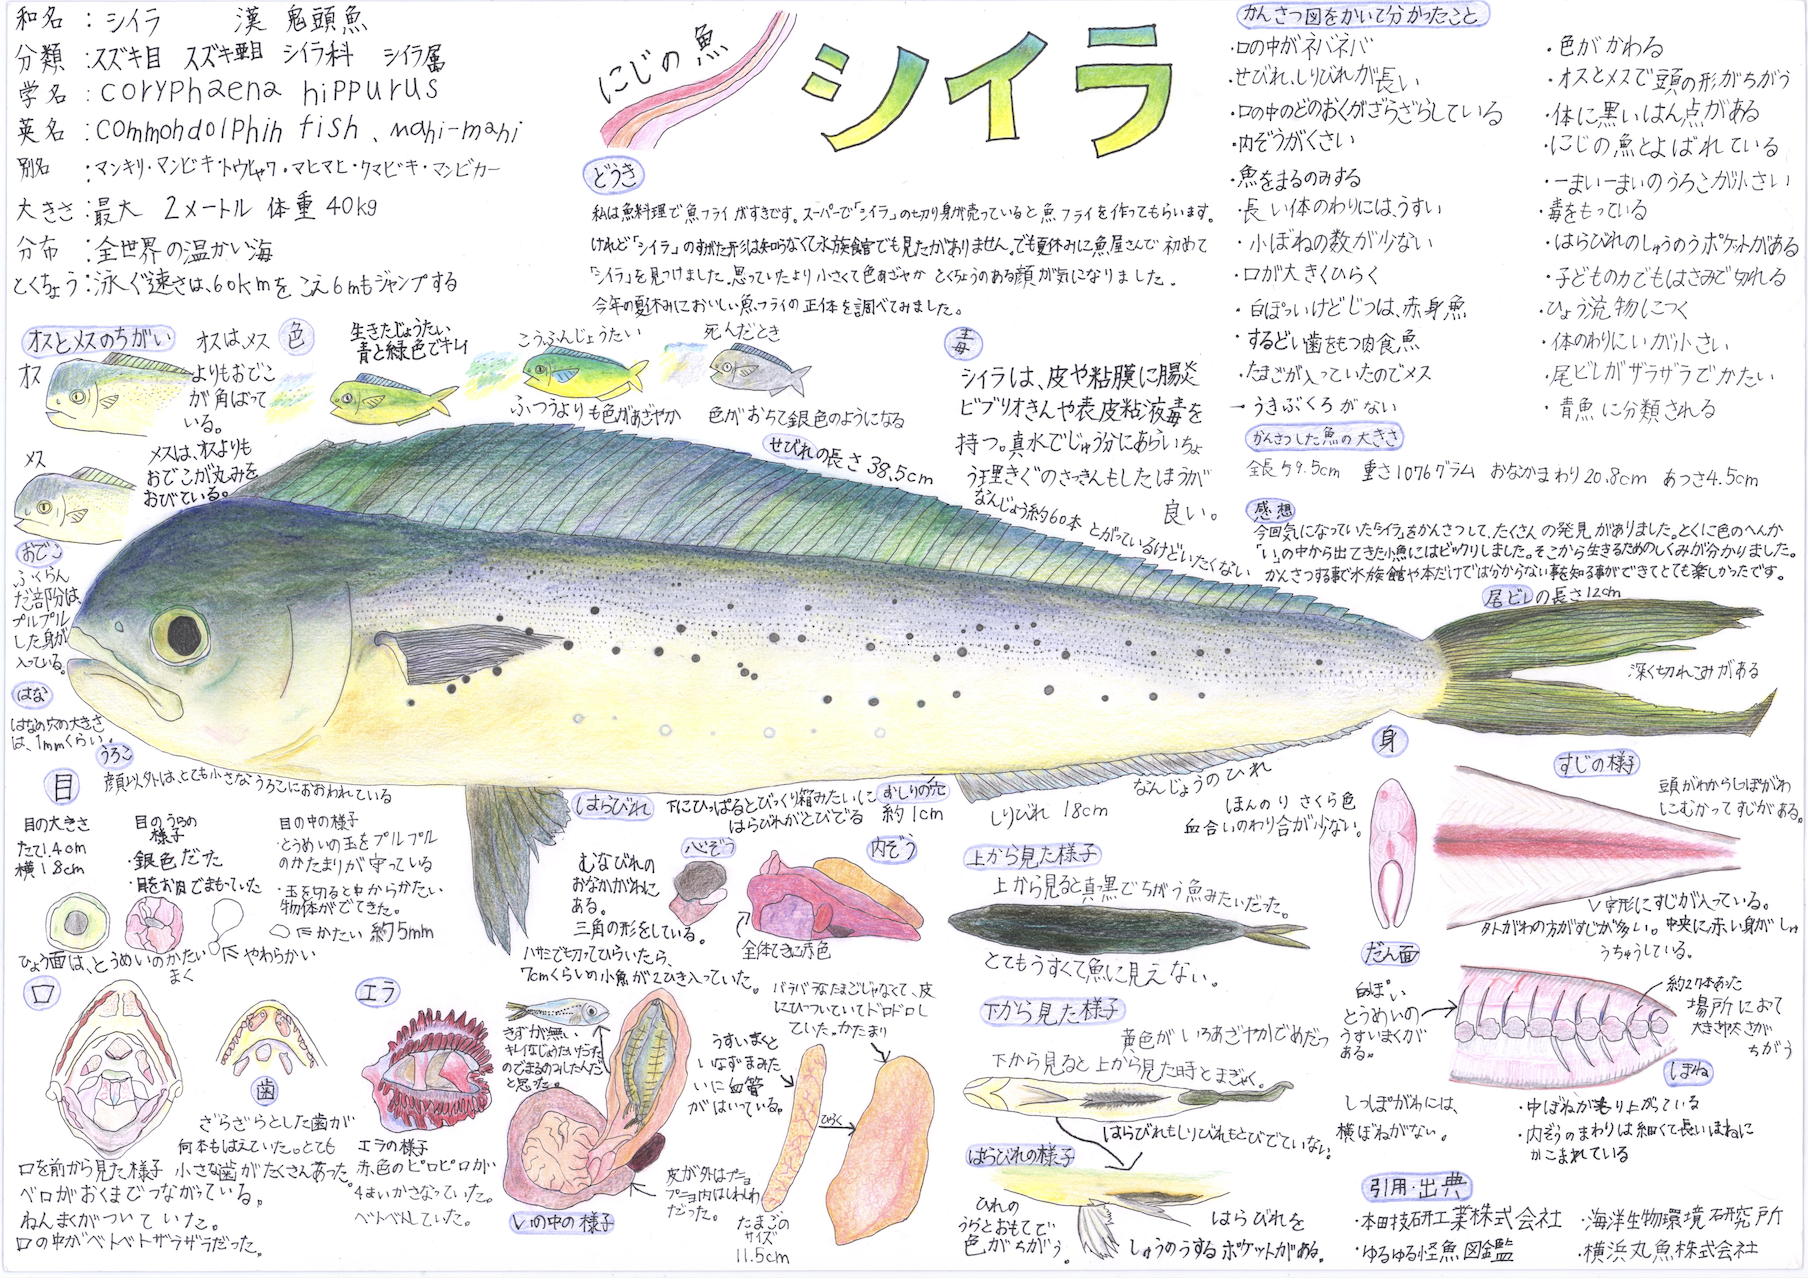 和名：シイラ　漢 鬼頭魚
分類：スズキ目 スズキ亜目 シイラ科 シイラ属
学名：coryphaena hippurus
英名：commohdolphin fish、mahi-mahi
別名：マンキリ・マンビキ・トウヒャク・マヒマヒ・クマビキ・マンビカー
大きさ：最大 2メートル 体重40kg
分布：全世界の温かい海
とくちょう：泳ぐ速さは、60kmをこえ6mもジャンプする
にじの魚
シイラ
どうき
私は魚料理で魚フライがすきです。スーパーで「シイラ」の切り身が売っていると魚フライを作ってもらいます。
けれど「シイラ」のすがた形は知らなくて水族館でも見たがありません。でも夏休みに魚屋さんで初めて
「シイラ」を見つけました。思っていたより小さくて色あざやか とくちょうのある顔が気になりました。
今年の夏休みにおいしい魚フライの正体を調べてみました。
かんさつ図をかいて分かったこと
・口の中がネバネバ
・せびれ、しりびれが長い
・口の中のどのおくがざらざらしている
・内ぞうがくさい
・魚をまるのみする
・長い体のわりには、うすい
・小ぼねの数が少ない
・口が大きくひらく
・白ぽいけどじつは、赤身魚
・するどい歯をもつ肉食魚
・たまごが入っていたのでメス
・うきぶくろがない
・色がかわる
・オスとメスで頭の形がちがう
・体に黒いはん点がある
・にじの魚とよばれている
・一まい一まいのうろこが小さい
・毒をもっている
・はらびれのしゅうのうポケットがある
・子どもの力でもはさみで切れる
・ひょう流物につく
・体のわりにいが小さい
・尾ビレがザラザラでかたい
・青魚に分類される
かんさつした魚の大きさ
重さ1076グラム おなかまわり20.8cm あつさ4.5cm
感想
今回気になっていた「シイラ」をかんさつして、たくさんの発見がありました。とくに色のへんか
「い」の中から出てきた小魚にはビックリしました。そこから生きるためのしくみが分かりました。
かんさつする事で水族館や本だけでは分からない事を知る事ができてとても楽しかったです。
オスとメスのちがい
オス
オスは、メス
よりもおでこ
が角ばって
いる。
メス
メスは、オスよりも
おでこが丸みを
おびている。
色
生きたじょうたい
青と緑色でキレイ
こうふんじょうたい
ふつうよりも色があざやか
死んだとき
色がおちて銀色のようになる
毒
シイラは、皮や粘膜に腸炎
ビブリオきんや表皮粘液毒を
持つ。真水でじゅう分にあらいちょ
う理きぐのさっきんもしたほうが
良い。
せびれの長さ 38.5cm
なんじょう約60本 とがっているけどいたくない
尾ビレの長さ12cm
深く切れこみがある
おでこ
ふくらん
だ部分は、
プルプル
した身が
入っている。
はな
はなの穴の大きさ
は、1mmくらい。
うろこ
顔以外は、とても小さなうろこにおおわれている
目
目の大きさ
たて1.4cm
横1.8cm
目のうらの
様子
・銀色だった
・目をお肉でまもっていた
目の中の様子
・とうめいの玉をプルプル
のかたまりが守っている
・玉を切ると中からかたい
物体がでてきた。
かたい 約5mm
やわらかい
ひょう面は、とうめいのかたい
まく
はらびれ
下にひっぱるとびっくり箱みたいに
はらびれがとびでる
おしりの穴
約1cm
しりびれ 18cm
なんじょうのひれ
むなびれの
おなかがわに
ある。
三角の形をしている。
心ぞう
内ぞう
全体てきに赤色
ハサミで切ってひらいたら、
7cmくらいの小魚が2ひき入っていた。
身
ほんのりさくら色
血合いのわり合が少ない。
すじの様子
頭がわからしっぽがわ
にむかってすじがある。
V字形にすじが入っている。
外がわの方がすじが多い。中央に赤い身がしゅ
うちゅうしている。
上から見た様子
上から見ると真っ黒でちがう魚みたいだった。
とてもうすくて魚に見えない。
下から見た様子
黄色がいろあざやかでめだつ
下から見ると上から見た時とまぎゃく。
はらびれもしりびれもとびでていない。
はらびれの様子
ひれの
うらとおもてで
色がちがう。
はらびれを
しゅうのうするポケットがある。
だん面
白ぽい
とうめいの
うすいまくが
ある。
約27本あった
場所によって
大きさ太さが
ちがう
ほね
しっぽがわには、
横ぼねがない。
・中ぼねがもり上がっている
・内ぞうのまわりは細くて長いほねに
かこまれている
口
口を前から見た様子
ベロがおくまでつながっている。
ねんまくがついていた。
口の中がベトベトザラザラだった。
歯
ざらざらとした歯が
何本もはえていた。とても
小さな歯がたくさんあった。
エラ
エラの様子
赤色のピロピロが
4まいかさなっていた。
ベトベトしていた。
きずが無い
キレイなじょうたいだった
のでまるのみしたんだ
と思った。
いの中の様子
皮が外はプニョ
プニョ内はしわしわ
だった。
うすいまくと
いなずまみた
いに血管
がはいっている。
バラバラなたまごじゃなくて、皮
にひっついていてドロドロし
ていた。かたまり
ひらく
たまごの
サイズ
11.5cm
引用・出典
・本田技研工業株式会社
・海洋生物環境研究所
・ゆるゆる怪魚図鑑
・横浜丸魚株式会社